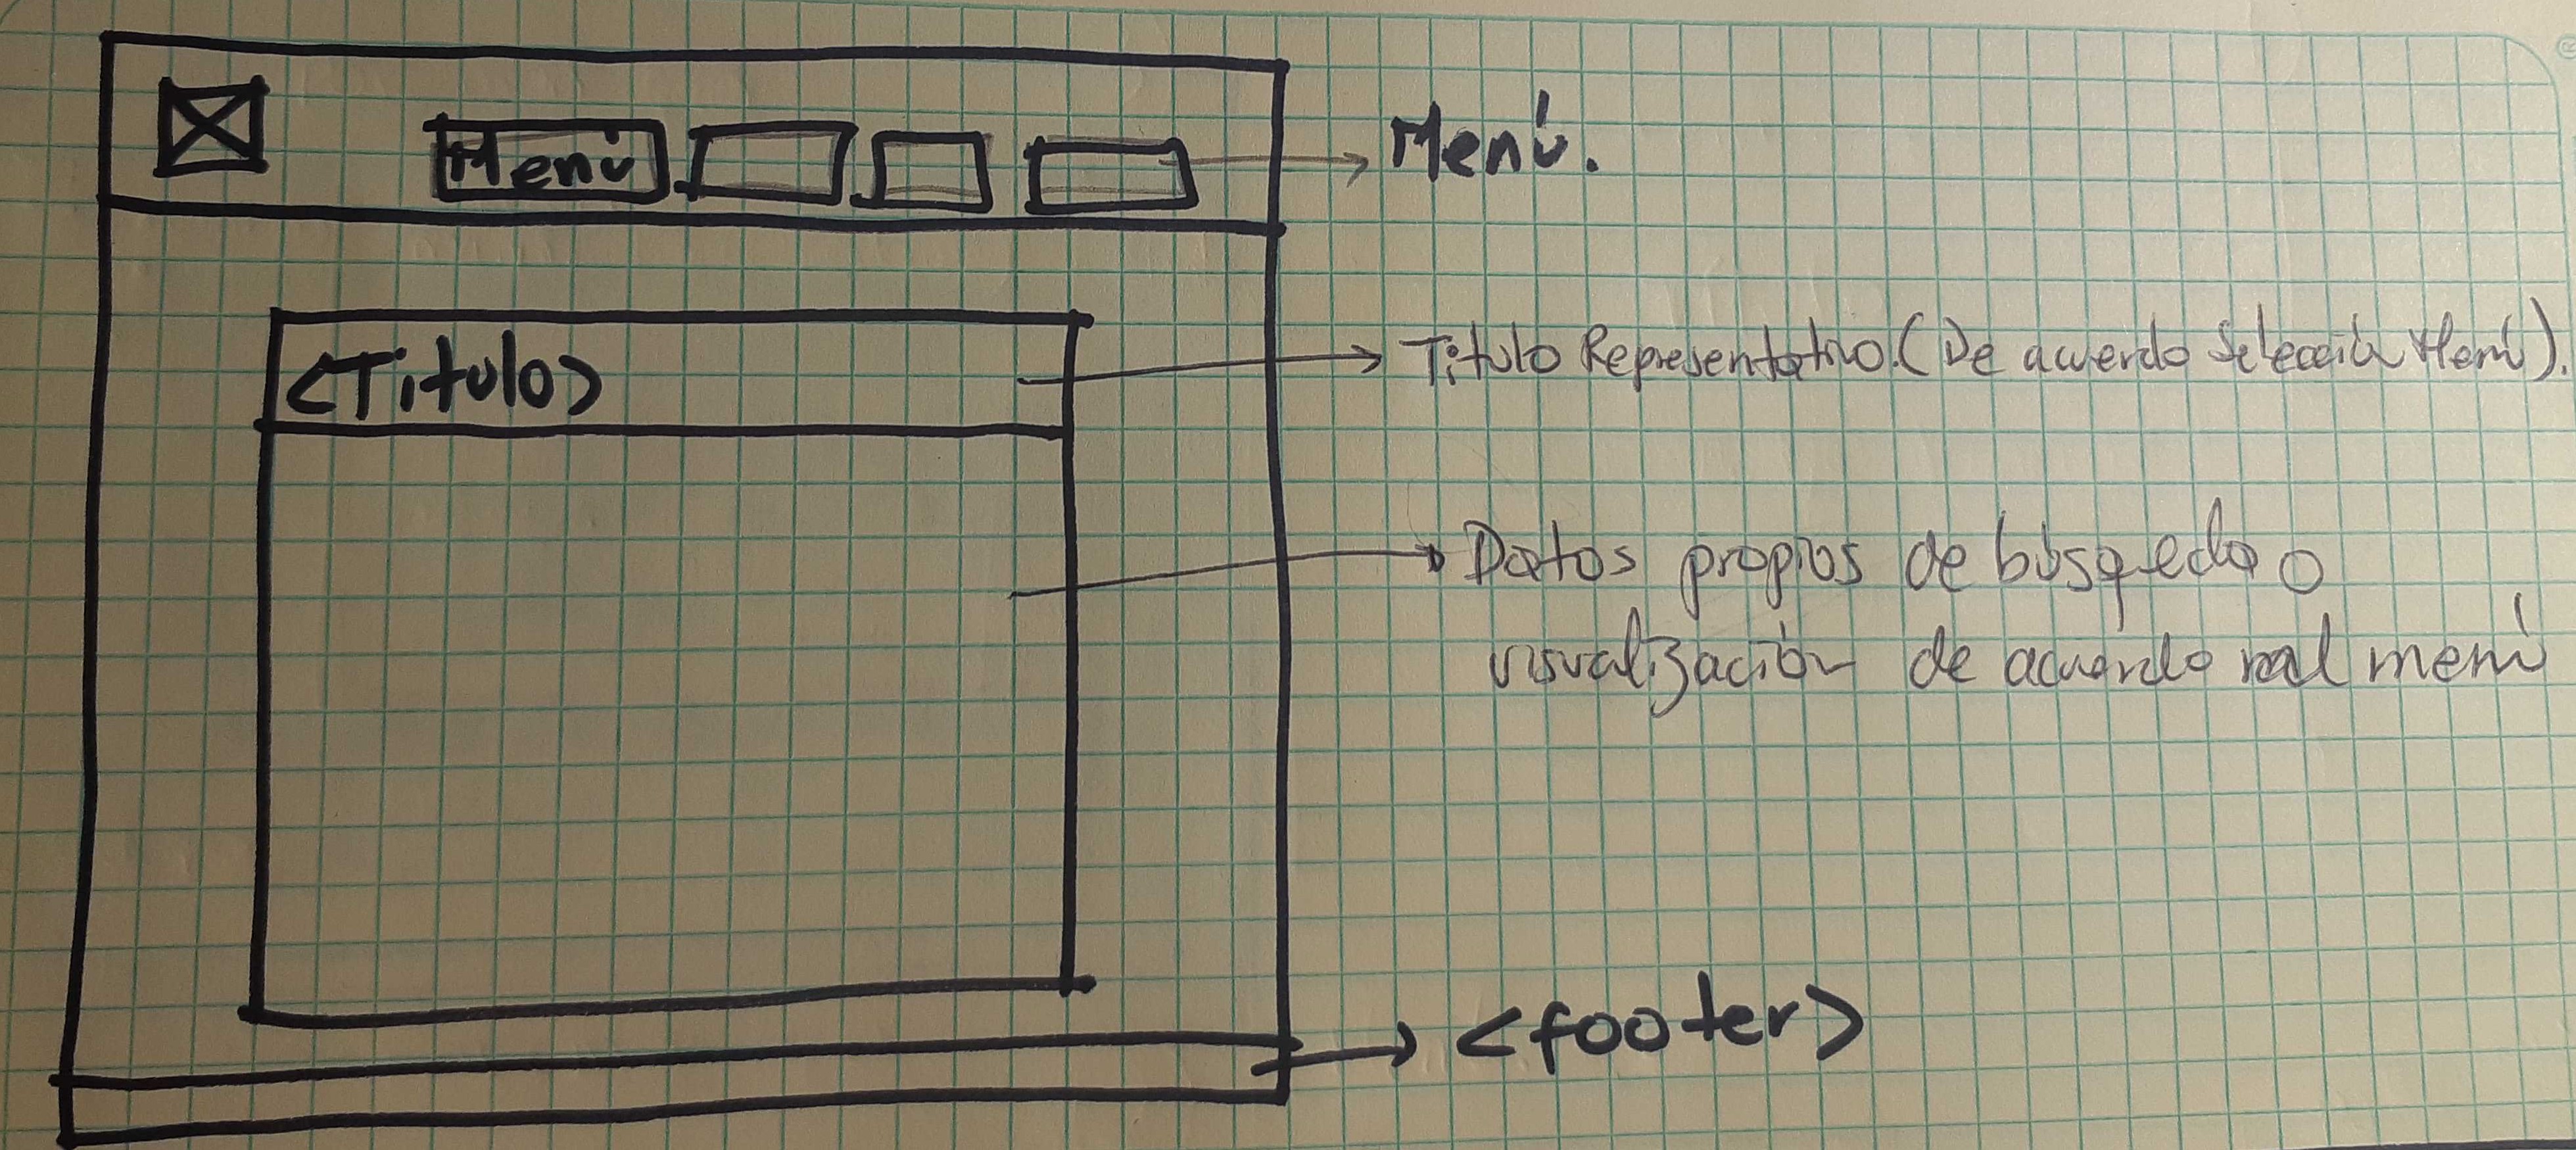 Menú
Menú.
<Titulo>
Titulo Representativo. (De acuerdo Selección Menú).
Datos propios de búsqueda o
visualización de acuerdo al menú
<footer>